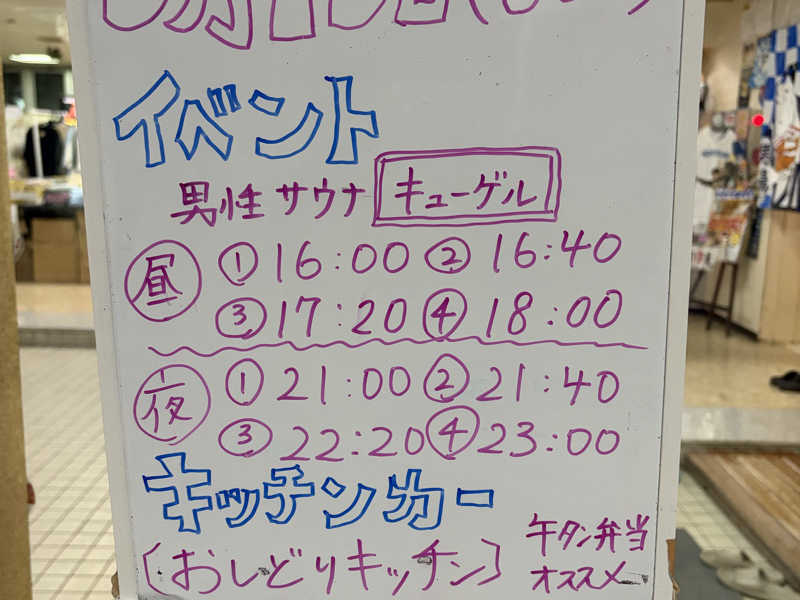 イベント
男性 サウナ キューゲル
昼 ① 16:00 ② 16:40
③ 17:20 ④ 18:00
夜 ① 21:00 ② 21:40
③ 22:20 ④ 23:00
キッチンカー
〔おしどりキッチン〕
牛タン弁当
オススメ